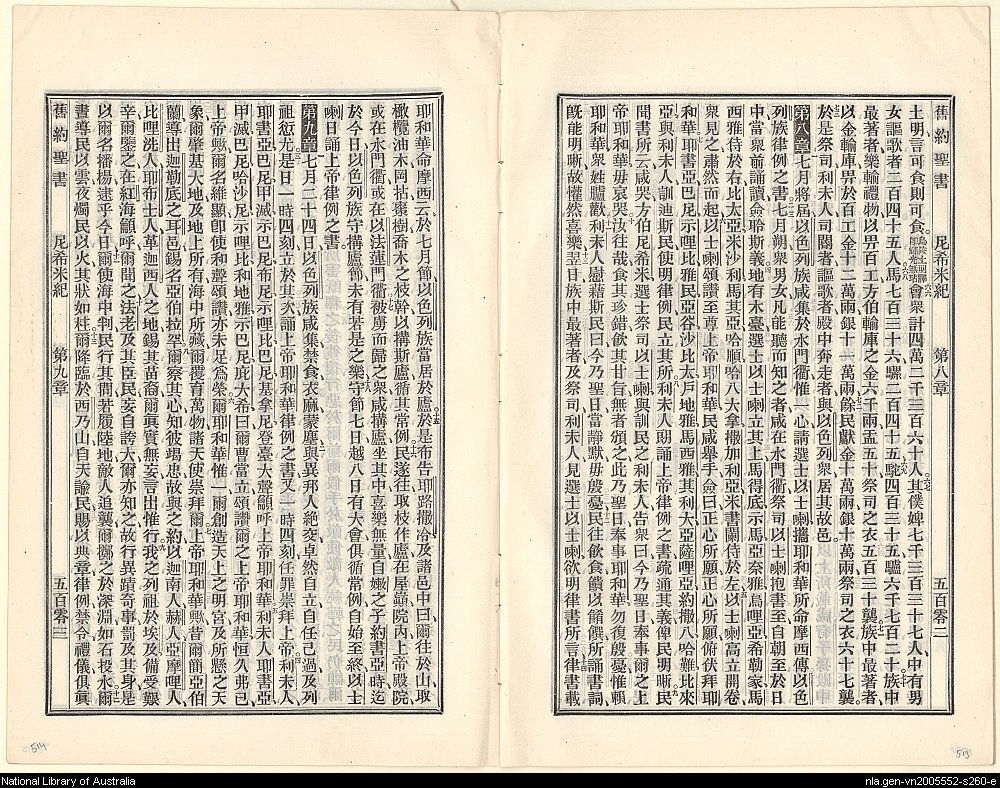 舊約聖書 尼希米紀 第八章 五百零二
士明言可食則可食會眾計四萬二千三百六十人其僕婢七千三百三十七人中有男
女謳歌者二百四十五人馬七百三十六騾二百四十五駝四百三十五驢六千七百二十族中
最著者樂輸禮物以畀百工方伯輸庫之金六千兩盂五十祭司之衣五百三十襲族中最著者
以金輸庫畀於百工金十二萬兩銀十一萬兩餘民獻金十萬兩銀十萬兩祭司之衣六十七襲
於是祭司利未人司閽者謳歌者殿中奔走者與以色列眾居其故邑
第八章七月將屆以色列族咸集於水門衢惟一心請選士以士喇攜耶和華所命摩西傳以色
列族律例之書七月朔眾男女凡能聽而知之者咸在水門衢祭司以士喇抱書至自朝至於日
中當眾前誦讀僉聆斯義地有木臺選士以士喇立其上馬得底示馬亞奈雅烏哩亞希勒家馬
西雅侍於右比太亞米沙利馬其亞哈順哈八大拿撒加利亞米書蘭侍於左以士喇高立開卷
眾見之肅然而起以士喇頌讚至尊上帝耶和華民咸舉手僉曰正心所願正心所願俯伏拜耶
和華耶書亞巴尼示哩比雅民亞谷沙比太戶地雅馬西雅其利大亞薩哩亞約撒八哈難比來
亞與利未人訓迪斯民使明律例民立其所利未人朗誦上帝律例之書疏通其義俾民明晰民
聞書所云咸哭方伯尼希米選士祭司以士喇與訓民之利未人告眾曰今乃聖日奉事爾之上
帝耶和華毋哀哭汝往哉食其珍錯飲其甘旨無者頒之此乃聖日奉事耶和華勿復殷憂惟賴
耶和華眾姓臚歡利未人慰藉斯民曰今乃聖日當靜默毋殷憂民往飲食饋以餚饌所誦書詞
既能明晰故懽然喜樂翌日族中最著者及祭司利未人見選士以士喇欲明律書所言律書載
513
耶和華命摩西云於七月節以色列族當居於廬於是布告耶路撒冷及諸邑中曰爾往於山取
橄欖油木岡拈棗樹喬木之枝幹以構斯廬循其常例民遂往取枝作廬在屋巔院內上帝殿院
或在水門衢或在以法蓮門衢被虜而歸之眾咸構廬坐其中喜樂無量自嫩之子約書亞時迄
於今日以色列族守構廬節未有若是之樂守節七日越八日有大會俱循常例自始至終以士
喇日誦上帝律例之書
第九章七月二十四日以色列族咸集禁食衣麻蒙塵與異邦人絕交卓然自立自任己過及列
祖愆尤是日一時四刻立於其次誦上帝耶和華律例之書又一時四刻任罪崇拜上帝利未人
耶書亞巴尼甲滅示巴尼布尼示哩比巴尼基拿尼登臺大聲籲呼上帝耶和華利未人耶書亞
甲滅巴尼哈沙尼示哩比和地雅示巴尼庇大希曰爾曹當立頌讚爾之上帝耶和華恒久弗已
上帝歟爾之名維顯即使和聲頌讚亦未足為榮爾耶和華惟一爾創造天上之明宮及所懸之天
象爾肇基大地及地上所有海中所藏覆育萬物諸天使崇拜爾上帝耶和華歟昔爾簡亞伯
蘭導出迦勒底之耳邑錫名亞伯拉罕爾察其心知彼竭忠故與之約以迦南人赫人亞摩哩人
比哩洗人耶布士人革迦西人之地錫其苗裔爾真實無妄言出惟行我之列祖於埃及備受艱
辛爾鑒之在紅海籲呼爾聞之法老及其臣民妄自誇大爾亦知之故行異蹟奇事罰及其身是
以爾名播揚逮乎今日爾使海中判民行其間若履陸地敵人追襲爾擲之於深淵如石投水爾
晝導民以雲夜燭民以火其狀如柱爾降臨於西乃山自天諭民賜以典章律例禁令禮儀俱真
舊約聖書 尼希米紀 第九章 五百零三
514
National Library of Australia
nla.gen-vn2005552-s260-e